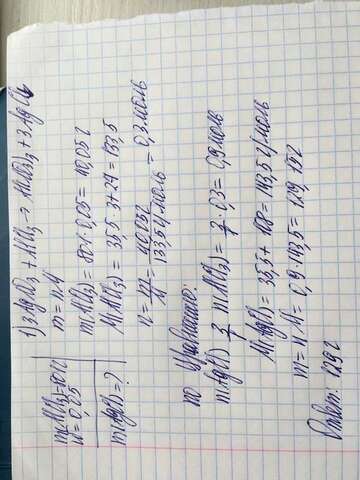 1) 3AgNO₃ + AlCl₃ → Al(NO₃)₃ + 3AgCl↓
m AlCl₃ =
w = 0,05
m(AgCl) = ?
m = n·M
m(AlCl₃) = 801·0,05 = 40,05 г
M(AlCl₃) = 35,5·3+27 = 133,5
n = m/M = 40,05г / 133,5 г/моль = 0,3 моль
по уравнению:
n(AgCl) 3/1 n(AlCl₃) = 3/1 · 0,3 = 0,9 моль
M(AgCl) = 35,5 + 108 = 143,5 г/моль
m = n·M = 0,9·143,5 = 129,15г
Ответ: 129 г